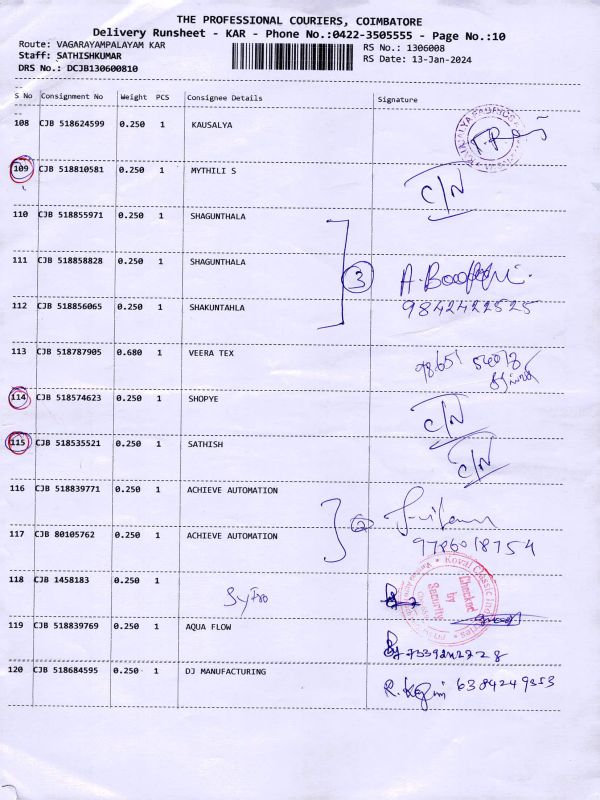 THE PROFESSIONAL COURIERS, COIMBATORE
Delivery Runsheet - KAR - Phone No.:0422-3505555 - Page No.:10
Route: VAGARAYAMPALAYAM KAR
RS No.: 1306008
Staff: SATHISHKUMAR
RS Date: 13-Jan-2024
DRS No.: DCJB130600810
S No Consignment No Weight PCS Consignee Details Signature
108 CJB 518624599 0.250 1 KAUSALYA
109 CJB 518810581 0.250 1 MYTHILI S C/N
110 CJB 518855971 0.250 1 SHAGUNTHALA
111 CJB 518858828 0.250 1 SHAGUNTHALA 3
112 CJB 518856065 0.250 1 SHAKUNTAHLA 9842422525
113 CJB 518787905 0.680 1 VEERA TEX
114 CJB 518574623 0.250 1 SHOPYE C/N
115 CJB 518535521 0.250 1 SATHISH C/N
116 CJB 518839771 0.250 1 ACHIEVE AUTOMATION 2
117 CJB 80105762 0.250 1 ACHIEVE AUTOMATION 9786018754
118 CJB 1458183 0.250 1
Checked
by
Security
119 CJB 518839769 0.250 1 AQUA FLOW
120 CJB 518684595 0.250 1 DJ MANUFACTURING 6384249353